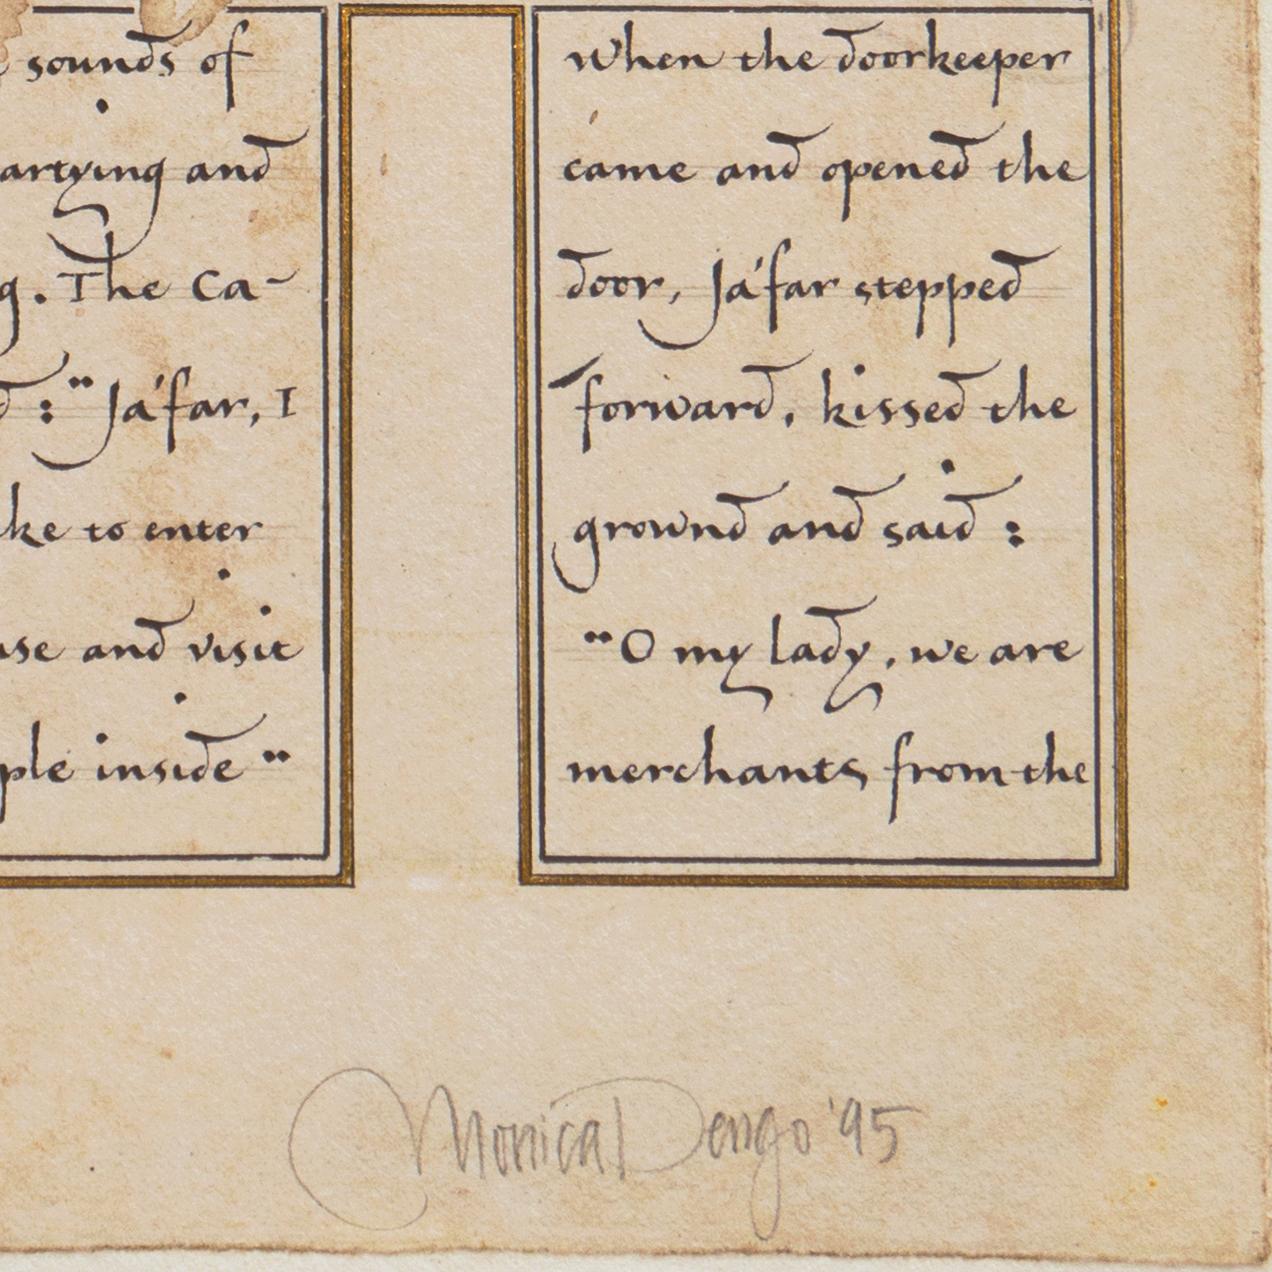 sounds of
artying and
g. The Ca-
d : "Ja'far, I
ke to enter
use and visit
ple inside"
when the doorkeeper
came and opened the
door, Ja'far stepped
forward, kissed the
grownd and said :
"O my lady, we are
merchants from the
Monica Dengo '95